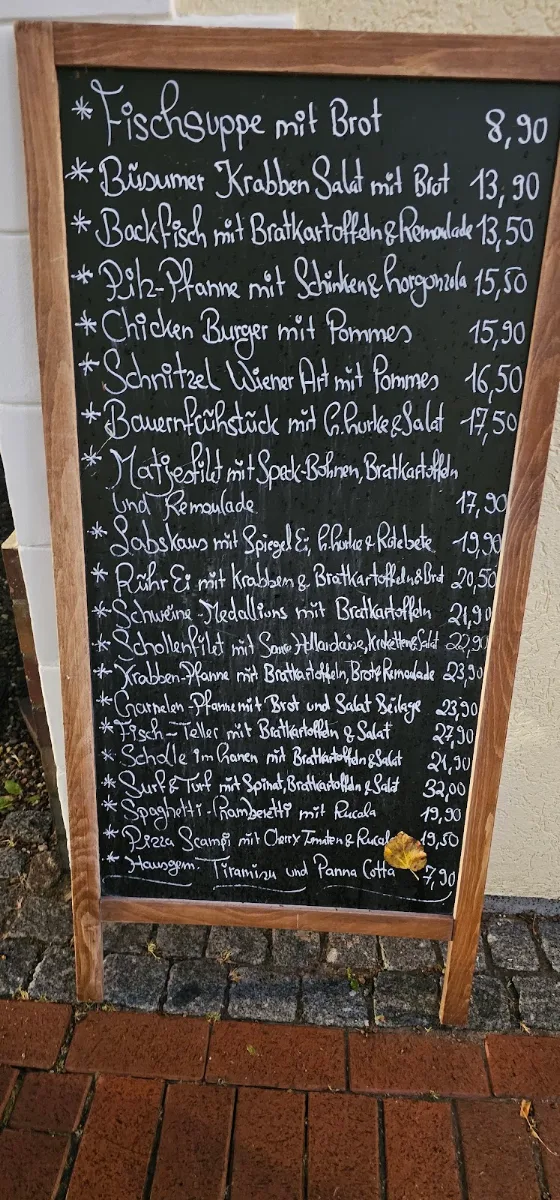 * Fischsuppe mit Brot 8,90
* Büsumer Krabben Salat mit Brot 13,90
* Backfisch mit Bratkartoffeln & Remoulade 13,50
* Pilz-Pfanne mit Schinken & Gorgonzola 15,50
* Chicken Burger mit Pommes 15,90
* Schnitzel Wiener Art mit Pommes 16,50
* Bauernfrühstück mit G.hurke & Salat 17,50
* Matjesfilet mit Speck-Bohnen, Bratkartoffeln
und Remoulade 17,90
* Labskaus mit Spiegel Ei, G.hurke & Rotebete 19,90
* Rühr Ei mit Krabben & Bratkartoffeln & Brot 20,50
* Schweine-Medallions mit Bratkartoffeln 21,90
* Schollenfilet mit Sauce Hollandaise, Kroketten & Salat 22,90
* Krabben-Pfanne mit Bratkartoffeln, Brot & Remoulade 23,90
* Garnelen-Pfanne mit Brot und Salat Beilage 23,90
* Fisch-Teller mit Bratkartoffeln & Salat 27,90
* Scholle im Ganen mit Bratkartoffeln & Salat 21,90
* Surf & Turf mit Spinat, Bratkartoffeln & Salat 32,00
* Spaghetti-Gamberetti mit Rucola 19,90
* Pizza Scampi mit Cherry Tomaten & 19,50
* Hausgem. Tiramisu und Panna Cotta 7,90